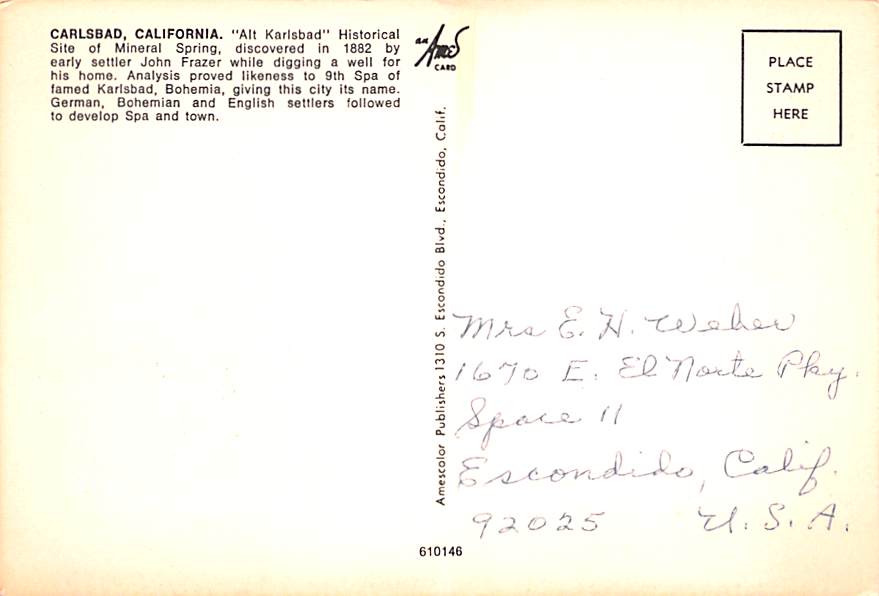 CARLSBAD, CALIFORNIA. "Alt Karlsbad" Historical
Site of Mineral Spring, discovered in 1882 by
early settler John Frazer while digging a well for
his home. Analysis proved likeness to 9th Spa of
famed Karlsbad, Bohemia, giving this city its name.
German, Bohemian and English settlers followed
to develop Spa and town.
an
Ames
CARD
PLACE
STAMP
HERE
Amescolor Publishers 1310 S. Escondido Blvd., Escondido, Calif.
Mrs E. H. Weber
1670 E. El Norte Pky.
Space 11
Escondido, Calif.
92025 U. S. A.
610146